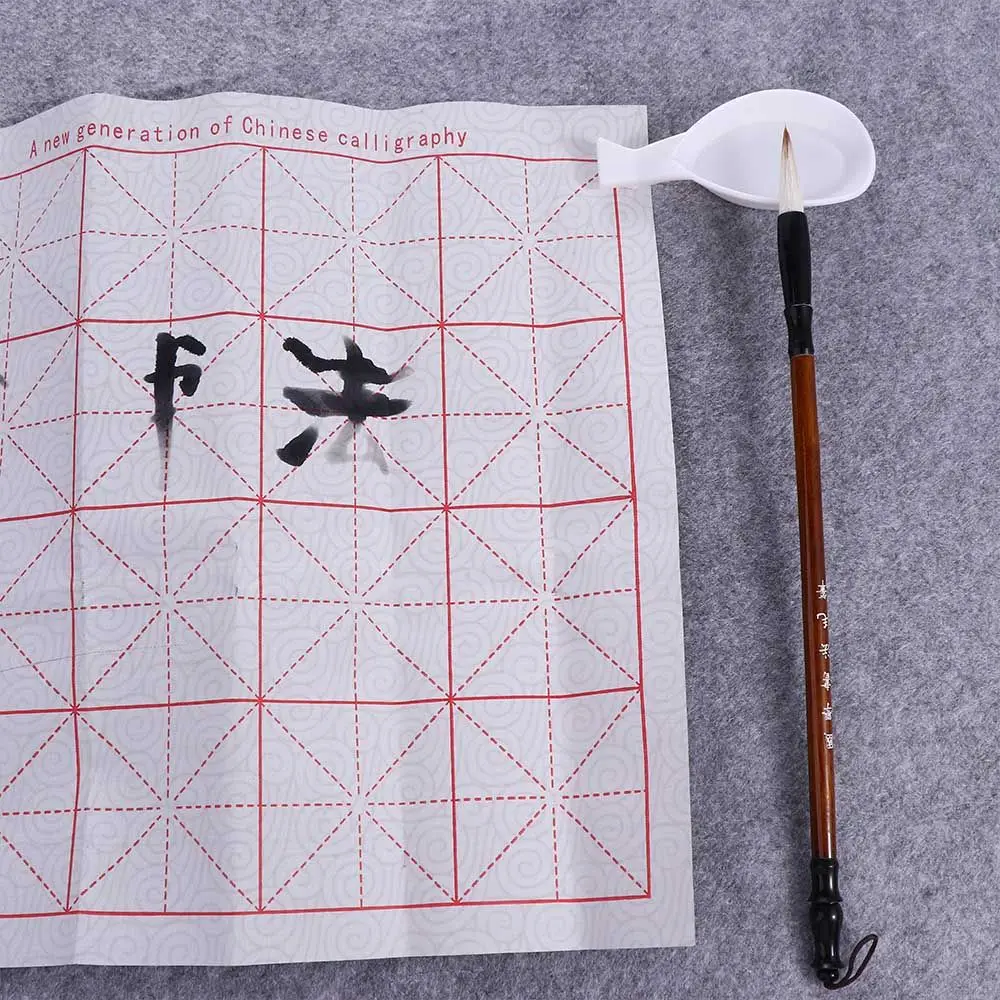 A new generation of Chinese calligraphy
书法